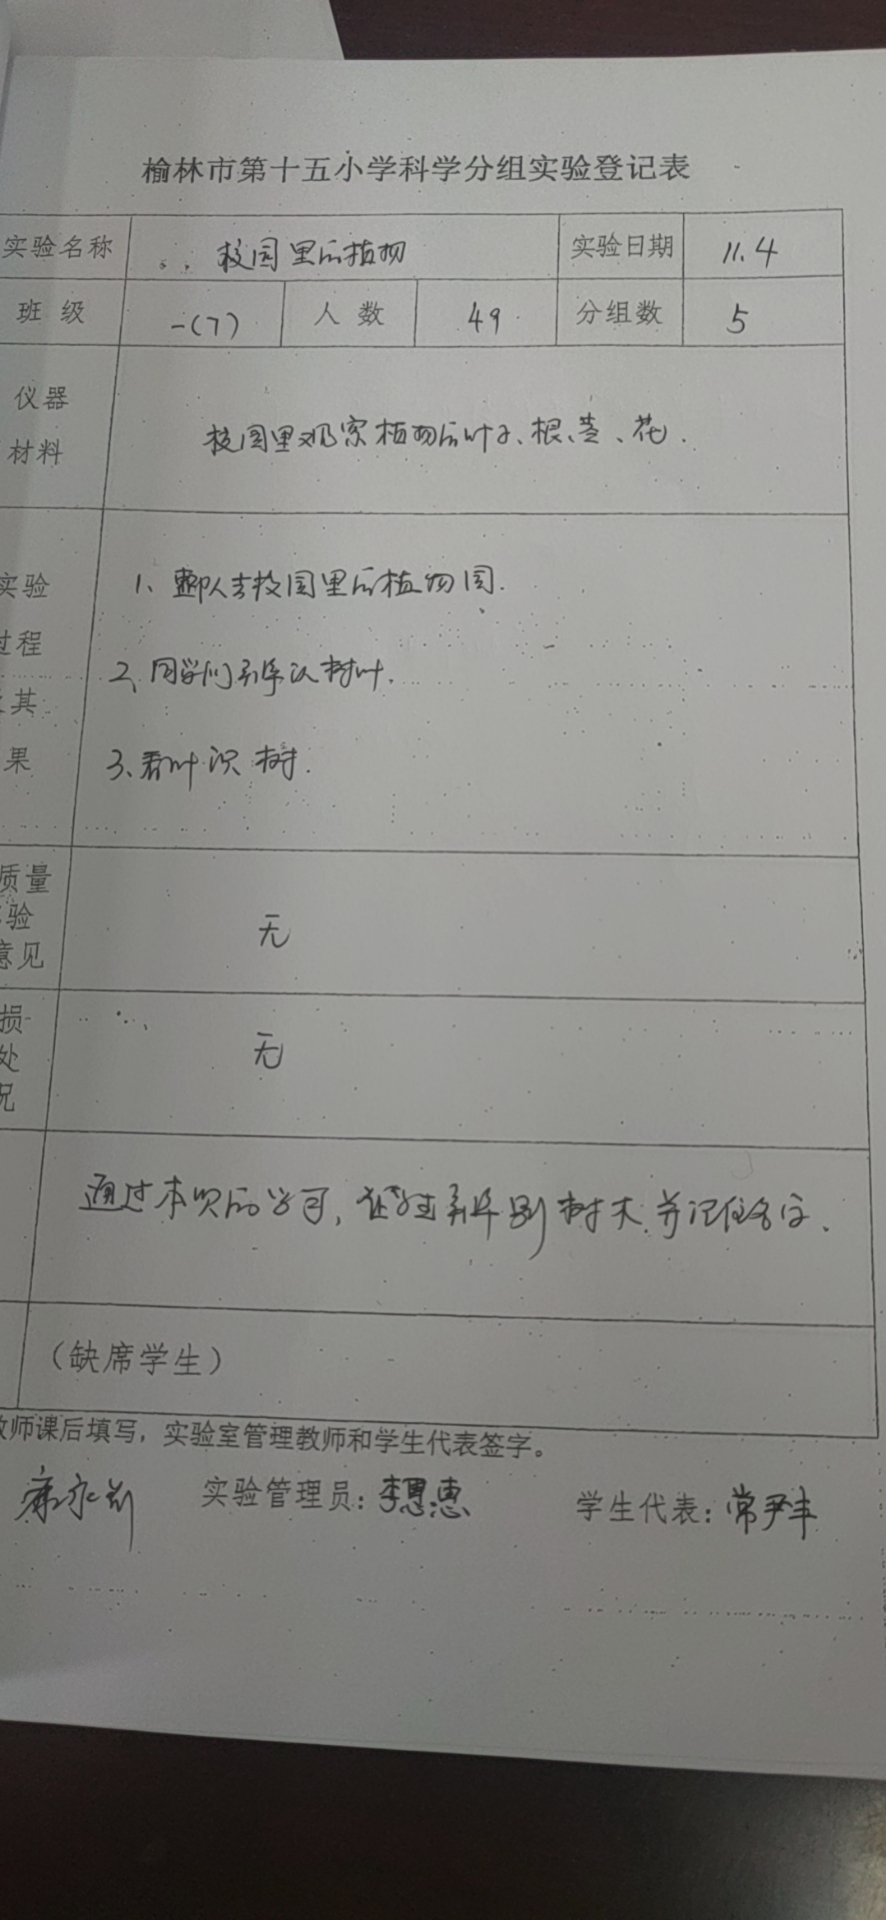 榆林市第十五小学科学分组实验登记表
实验名称 校园里的植物 实验日期 11.4
班级 一(7) 人数 49 分组数 5
仪器
材料
校园里观察植物的叶子、根、茎、花.
实验
过程
其
果
1、 去校园里的植物园.
2、同学们 认树叶.
3、看叶识树.
质量
验
意见
无
损
处
况
无
通过本次的学习, 学生辨别树木.并记住名字、
(缺席学生)
教师课后填写,实验室管理教师和学生代表签字。
康永 实验管理员:李思惠 学生代表:常尹丰